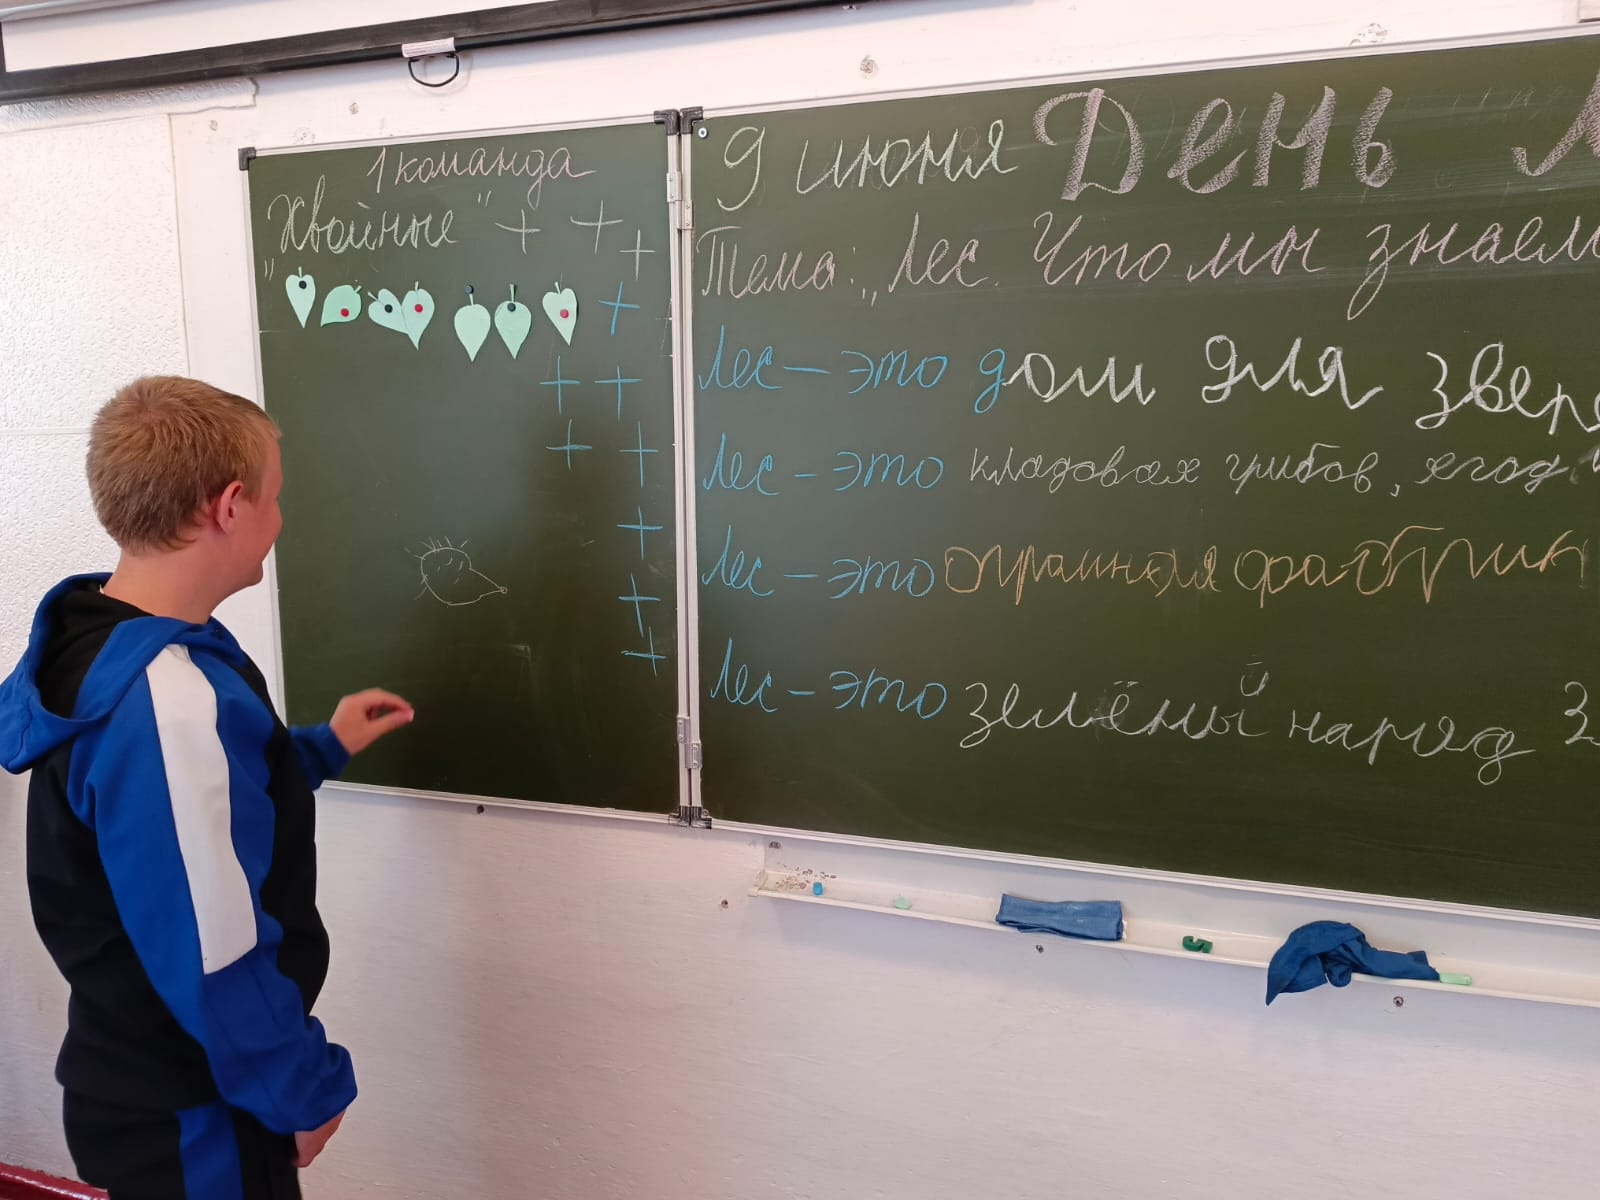 1 команда
"Хвойные"
9 июня День Л
Тема: „Лес. Что мы знаем
Лес – это дом для звере
Лес – это кладовая грибов, ягод и
Лес – это огромная фабрик
Лес – это зелёный народ З